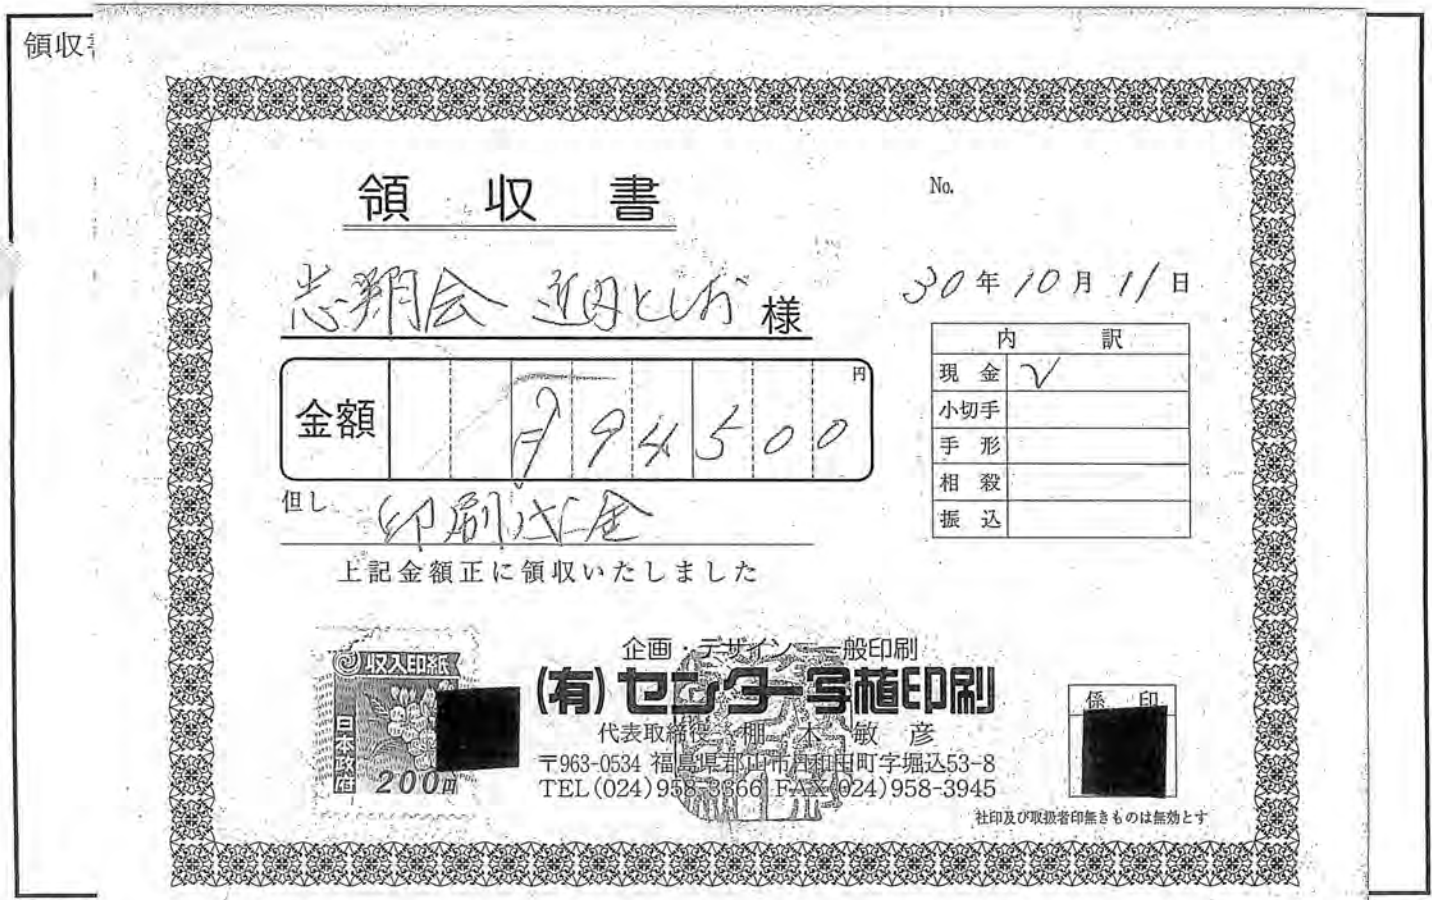 領収書
領 収 書
No.
志翔会 近内としお 様
30年10月11日
金額 ¥94500円
内 訳
現 金 ✓
小切手
手 形
相 殺
振 込
但し 印刷代金
上記金額正に領収いたしました
収入印紙
日本政府
200円
企画・デザイン・一般印刷
(有)センター写植印刷
代表取締役 棚 木 敏 彦
〒963-0534 福島県郡山市日和田町字堀込53-8
TEL(024)958-3366 FAX(024)958-3945
係 印
社印及び取扱者印無きものは無効とす